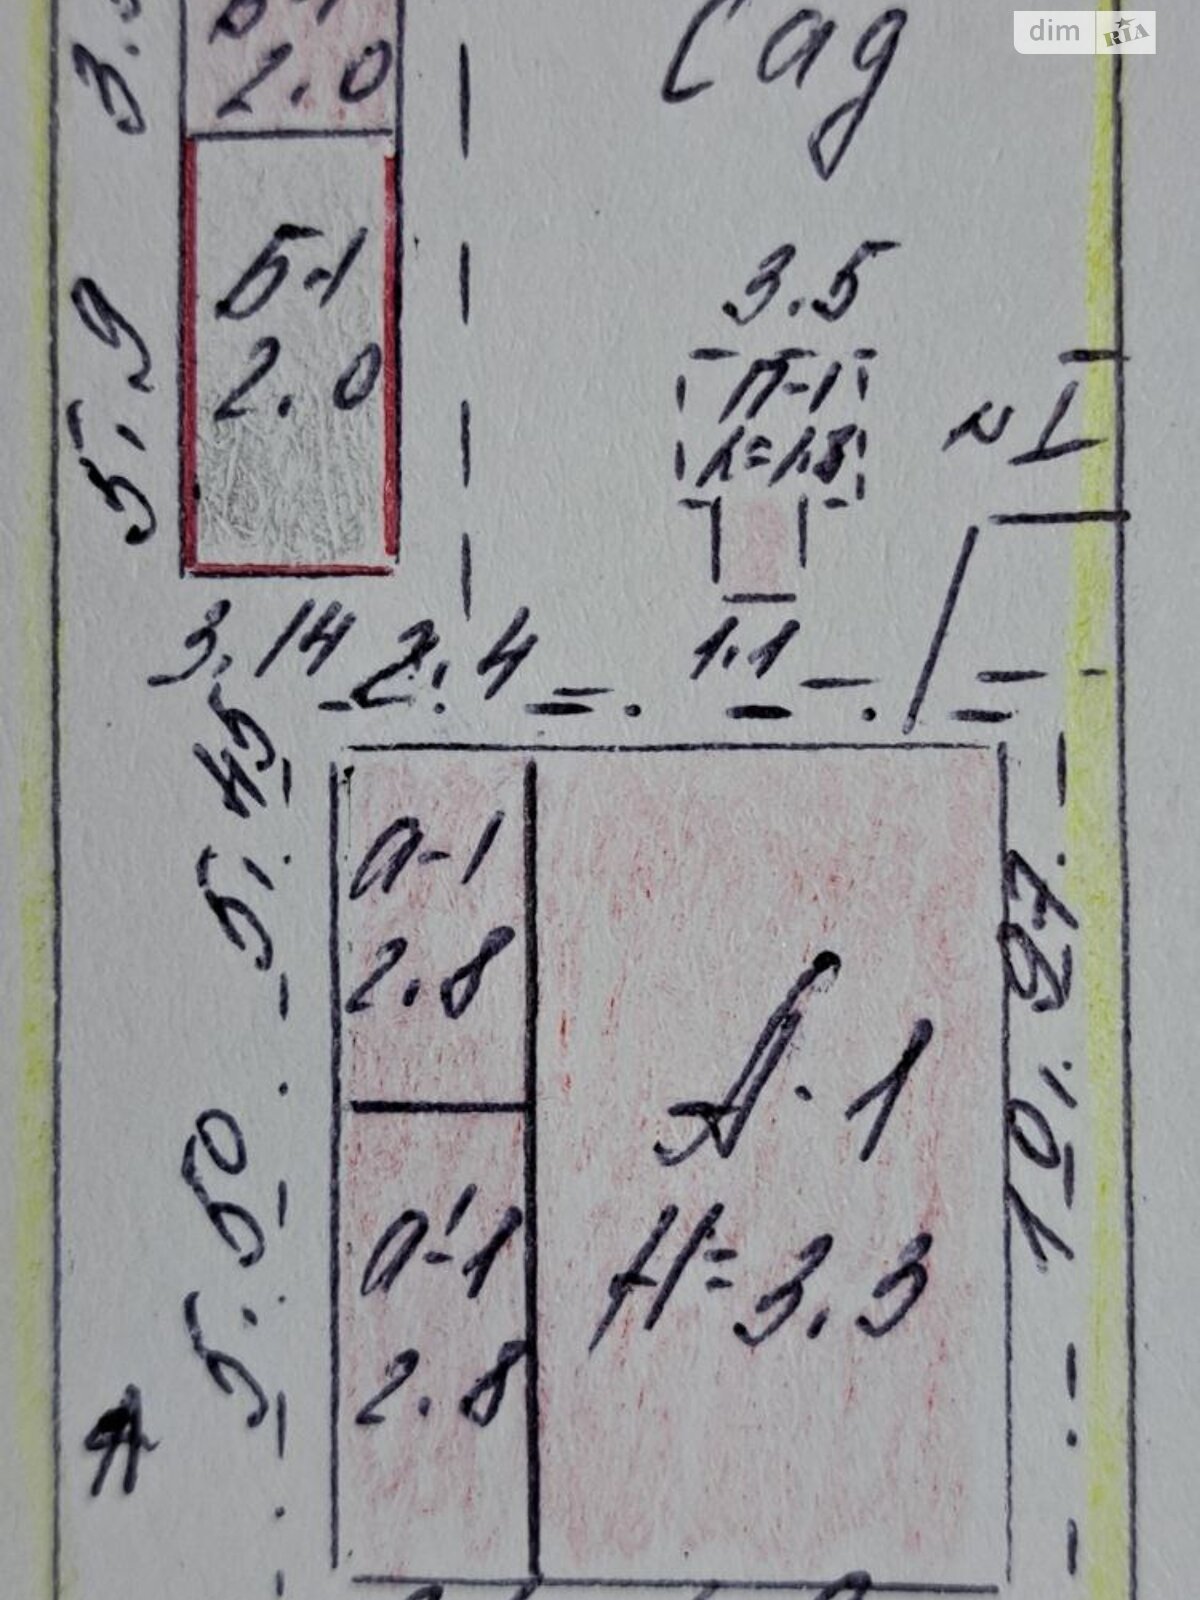 dim RIA
Сад
2.0
Б-1
2.0
5,9
3.5
П-1
h=1.8
№1
3.14
2.4
1.1
5,45
а-1
2.8
А-1
H=3.3
5.50
а'-1
2.8
А